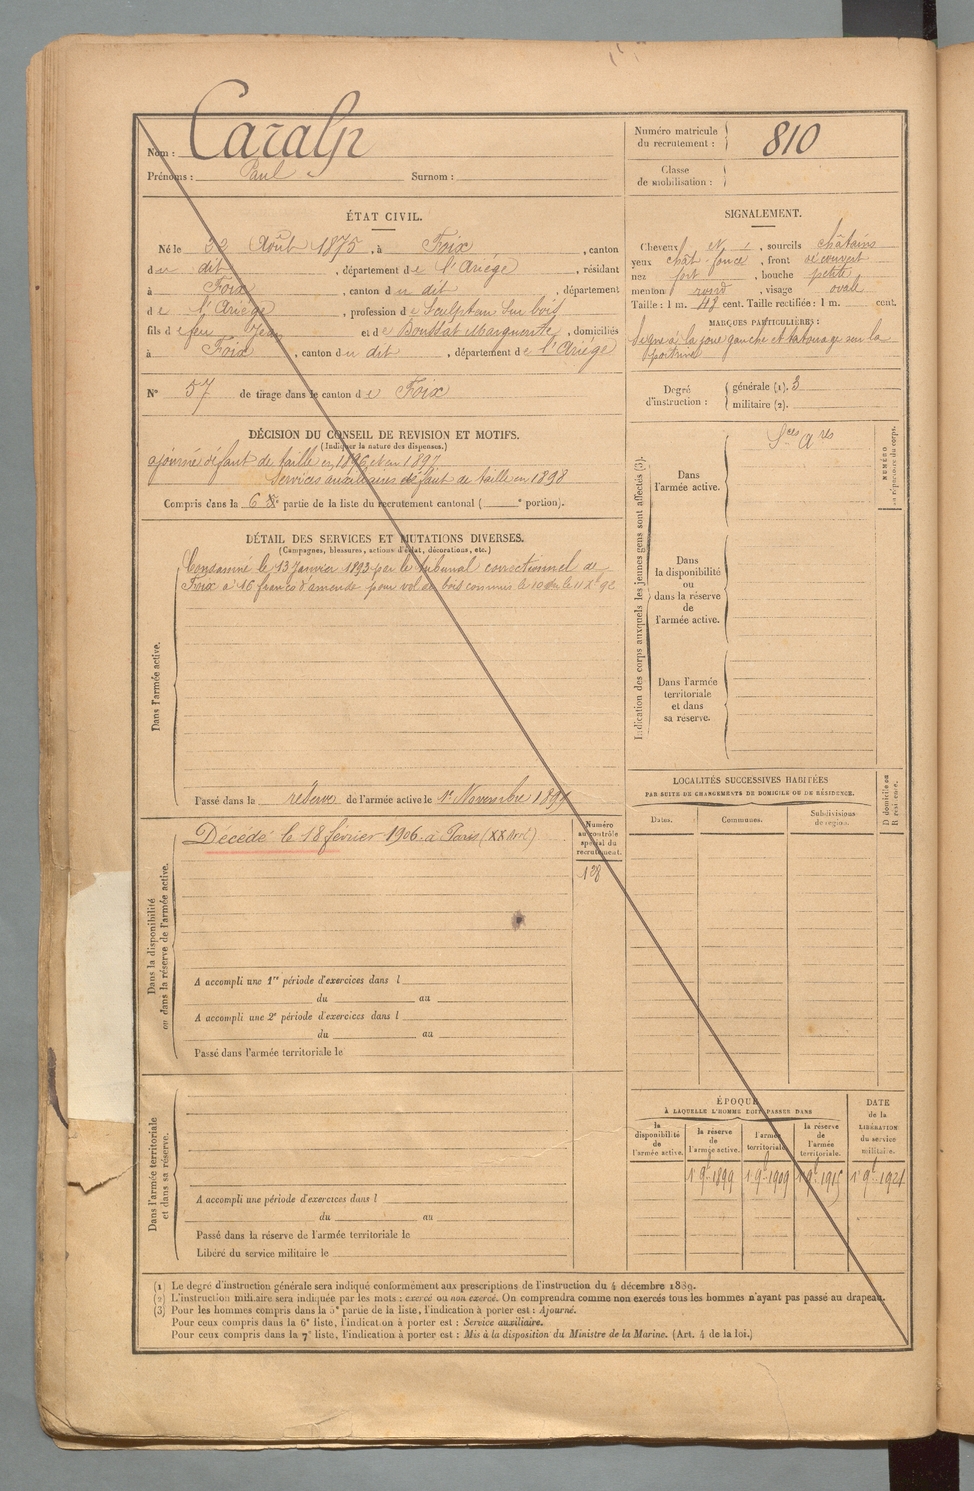 Nom : Caralp
Prénoms : Paul Surnom :
Numéro matricule du recrutement : 810
Classe de mobilisation :
ÉTAT CIVIL.
Né le 22 Août 1875, à Foix, canton
du dit, département de l'Ariége, résidant
à Foix, canton du dit, département
de l'Ariége, profession de Sculpteur sur bois
fils de feu Jean et de Boussat Marguerite, domiciliés
à Foix, canton du dit, département de l'Ariége
N° 57 de tirage dans le canton de Foix
SIGNALEMENT.
Cheveux et, sourcils châtains
yeux chât. foncé, front découvert
nez fort, bouche petite
menton rond, visage ovale
Taille : 1 m. 48 cent. Taille rectifiée : 1 m. cent.
MARQUES PARTICULIÈRES :
Signe à la joue gauche et tatouage sur la
poitrine
Degré d'instruction : générale (1). 3
militaire (2).
DÉCISION DU CONSEIL DE REVISION ET MOTIFS.
(Indiquer la nature des dispenses.)
ajourné défaut de taille en 1896 et en 1897
Services auxiliaires défaut de taille en 1898
Compris dans la 6e partie de la liste du recrutement cantonal ( e portion).
DÉTAIL DES SERVICES ET MUTATIONS DIVERSES.
(Campagnes, blessures, actions d'éclat, décorations, etc.)
Dans l'armée active.
Condamné le 13 Janvier 1893 par le tribunal correctionnel de
Foix à 16 francs d'amende pour vol de bois commis le 10 ou le 11 Xbre 92
Passé dans la réserve de l'armée active le 1er Novembre 1899
Indication des corps auxquels les jeunes gens sont affectés (3).
Dans l'armée active.
Sces Ares
NUMÉRO
Dans la disponibilité ou dans la réserve de l'armée active.
Dans l'armée territoriale et dans sa réserve.
LOCALITÉS SUCCESSIVES HABITÉES
PAR SUITE DE CHANGEMENTS DE DOMICILE OU DE RÉSIDENCE.
Dates. Communes. Subdivisions de région. D domicile ou R résidence.
Dans la disponibilité ou dans la réserve de l'armée active.
Décédé le 18 février 1906 à Paris (XX Arrt)
Numéro au contrôle spécial du recrutement.
128
A accompli une 1re période d'exercices dans l
du au
A accompli une 2e période d'exercices dans l
du au
Passé dans l'armée territoriale le
Dans l'armée territoriale et dans sa réserve.
A accompli une période d'exercices dans l
du au
Passé dans la réserve de l'armée territoriale le
Libéré du service militaire le
ÉPOQUE
À LAQUELLE L'HOMME DOIT PASSER DANS
la disponibilité de l'armée active.
la réserve de l'armée active.
l'armée territoriale.
la réserve de l'armée territoriale.
DATE de la LIBÉRATION du service militaire.
1er 9bre 1899 1er 9bre 1909 1er 9bre 1915 1er 9bre 1921
(1) Le degré d'instruction générale sera indiqué conformément aux prescriptions de l'instruction du 4 décembre 1889.
(2) L'instruction militaire sera indiquée par les mots : exercé ou non exercé. On comprendra comme non exercés tous les hommes n'ayant pas passé au drapeau.
(3) Pour les hommes compris dans la 5e partie de la liste, l'indication à porter est : Ajourné.
Pour ceux compris dans la 6e liste, l'indication à porter est : Service auxiliaire.
Pour ceux compris dans la 7e liste, l'indication à porter est : Mis à la disposition du Ministre de la Marine. (Art. 4 de la loi.)